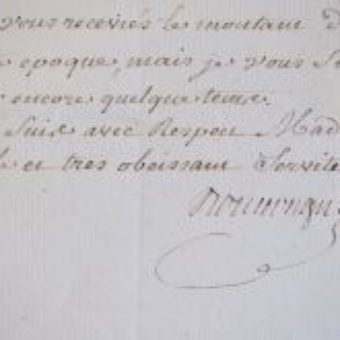 vous receviés le montant D
epoque, mais je vous
encore quelque tems.
Suis avec Respect Mad
et tres obeissant Servite